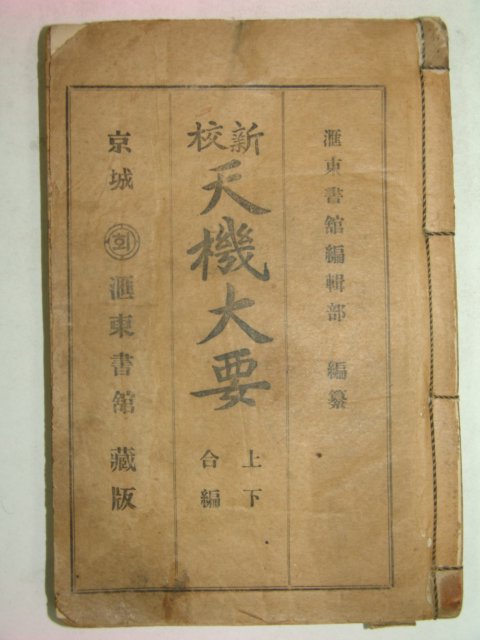 滙東書館編輯部 編纂
新校
天機大要
上下
合編
京城 회 滙東書館 藏版